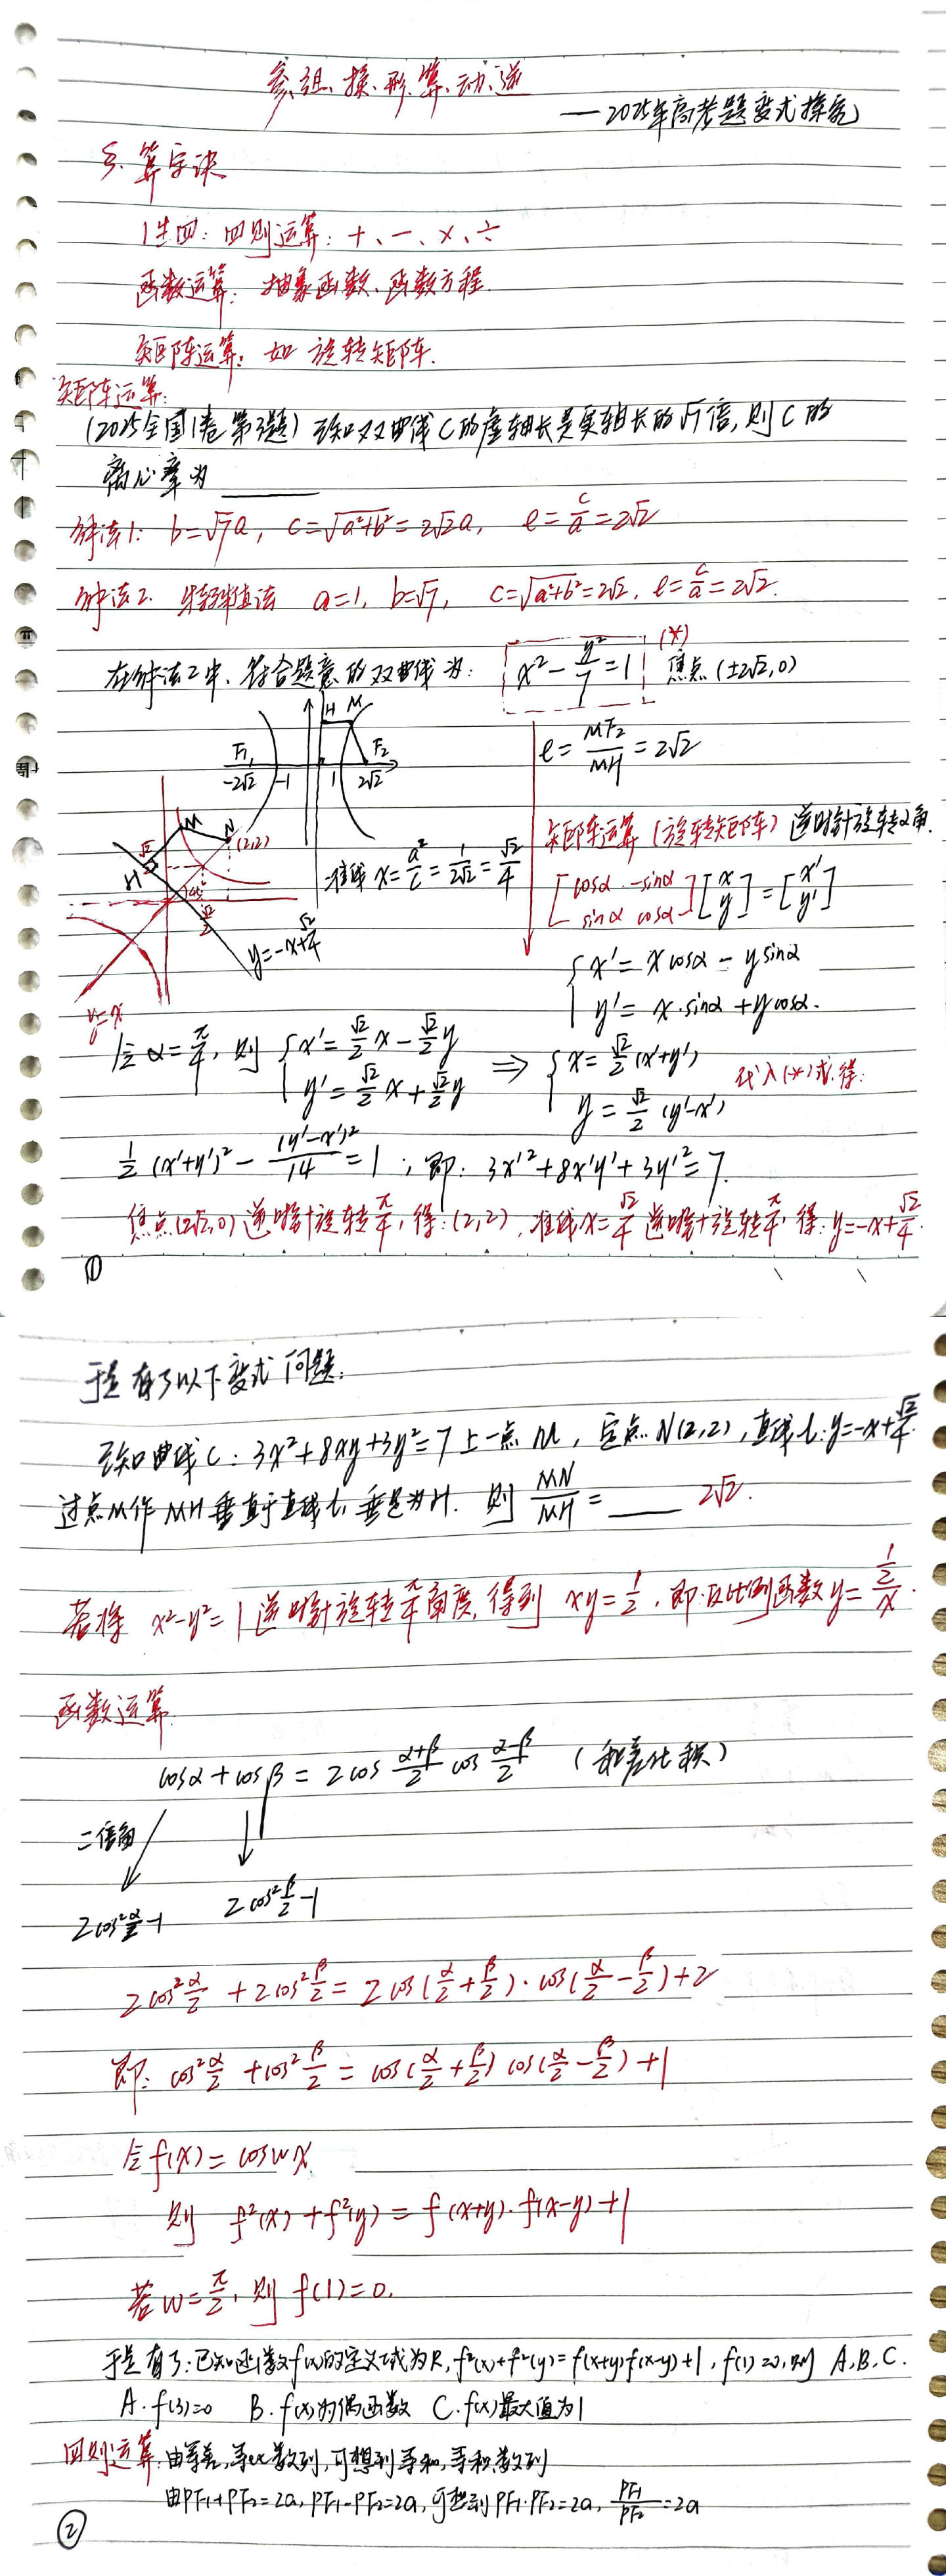 参、组、换、形、算、动、逆
——2025年高考题变式探究
5. 算字诀
1生四: 四则运算: +、-、×、÷
函数运算: 抽象函数、函数方程.
矩阵运算: 如 旋转矩阵.
矩阵运算:
(2025全国1卷第3题) 已知双曲线C的虚轴长是实轴长的√7倍,则C的
离心率为 ______
解法1: b=√7a, c=√(a²+b²)=2√2a, e=c/a=2√2
解法2. 特殊值法 a=1, b=√7, c=√(a²+b²)=2√2, e=c/a=2√2.
在解法2中、符合题意的双曲线为: x²-y²/7=1 (*) 焦点(±2√2,0)
H M
F₁ F₂
-2√2 -1 1 2√2
e=MF₂/MH=2√2
准线 x=a²/c=1/(2√2)=√2/4
M N (2,2)
H
45°
y=-x+√2/4
y=x
矩阵运算 (旋转矩阵) 逆时针旋转α角.
[cosα -sinα
sinα cosα] [x
y] = [x′
y′]
{x′=xcosα-ysinα
y′=x·sinα+ycosα.
令α=π/4, 则 {x′=√2/2x-√2/2y
y′=√2/2x+√2/2y
⇒ {x=√2/2(x′+y′)
y=√2/2(y′-x′)
代入(*)式.得:
1/2(x′+y′)²-(y′-x′)²/14=1; 即: 3x′²+8x′y′+3y′²=7.
焦点(2√2,0)逆时针旋转π/4,得:(2,2), 准线x=√2/4逆时针旋转π/4,得:y=-x+√2/4.
①
于是有了以下变式问题:
已知曲线C: 3x²+8xy+3y²=7上一点M, 定点N(2,2),直线l:y=-x+√2/4.
过点M作MH垂直于直线l,垂足为H. 则 MN/MH= ____ 2√2.
若将 x²-y²=1逆时针旋转π/4角度,得到 xy=1/2, 即:反比例函数y=(1/2)/x.
函数运算
cosα+cosβ=2cos(α+β)/2 cos(α-β)/2 (和差化积)
二倍角
2cos²α/2-1 2cos²β/2-1
2cos²α/2+2cos²β/2=2cos(α/2+β/2)·cos(α/2-β/2)+2
即: cos²α/2+cos²β/2=cos(α/2+β/2)cos(α/2-β/2)+1
令f(x)=coswx
则 f²(x)+f²(y)=f(x+y)·f(x-y)+1
若w=π/2, 则 f(1)=0.
于是有了:已知函数f(x)的定义域为R, f²(x)+f²(y)=f(x+y)f(x-y)+1, f(1)=0,则 A.B.C.
A. f(3)=0 B. f(x)为偶函数 C. f(x)最大值为1
四则运算:由等差,等比数列,可想到等和,等积数列
由PF₁+PF₂=2a, PF₁-PF₂=2a, 可想到PF₁·PF₂=2a, PF₁/PF₂=2a
②